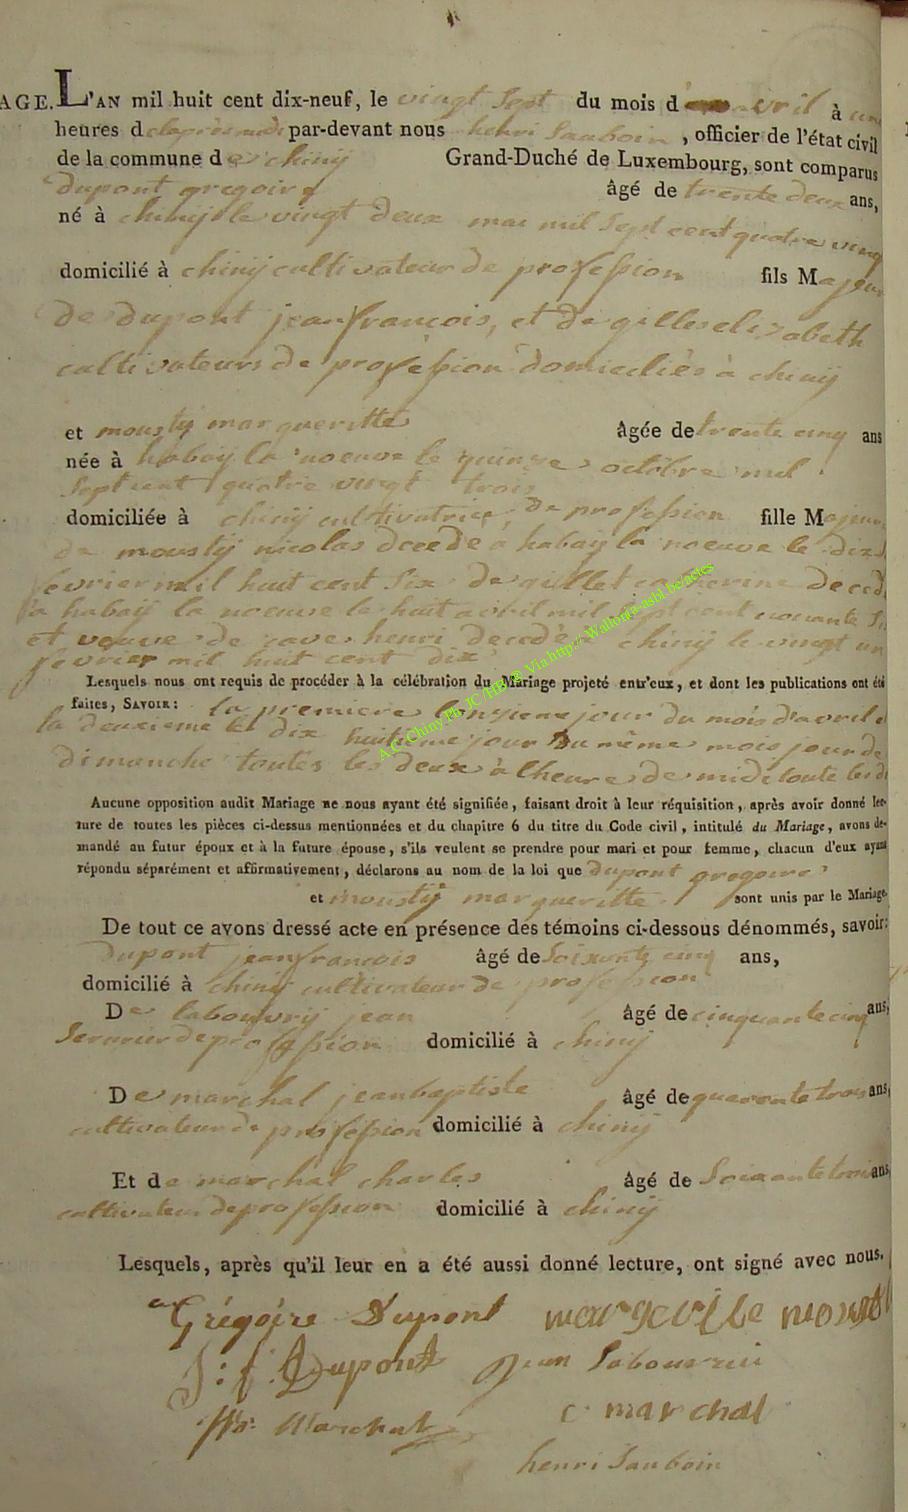 AGE. L'AN mil huit cent dix-neuf, le vingt sept du mois d'avril à
heures de laprès midi par-devant nous henri Sauboin , officier de l'état civil
de la commune de chinÿ Grand-Duché de Luxembourg, sont comparus
dupont gregoire âgé de trente deux ans,
né à chinÿ le vingt deux mai mil sept cent quatre vingt
domicilié à chinÿ cultivateur de profession fils Majeur
de dupont jeanfrancois, et de gilles elizabeth
cultivateurs de profession domiciliés à chinÿ
et moustÿ margueritte âgée de trente cinq ans
née à habaÿ la noeuve le quinze octobre mil
sept cent quatre vingt trois
domiciliée à chinÿ cultivatrice de profession fille Majeure
de moustÿ nicolas decedé a habaÿ la noeuve le dix
fevrier mil huit cent six de gillet caterine deced
a habaÿ la noeuve le huit avril mil sept cent nonante
et veuve de henri decedé à chinÿ le vingt un
fevrier mil huit cent dix
Lesquels nous ont requis de procéder à la célébration du Mariage projeté entr'eux, et dont les publications ont été
faites, SAVOIR: la premiere jour du mois d'avril
la deuxieme le dix huitieme jour du même mois jour de
dimanche toutes les deux à lheure de midi
Aucune opposition audit Mariage ne nous ayant été signifiée, faisant droit à leur réquisition, après avoir donné lec-
ture de toutes les pièces ci-dessus mentionnées et du chapitre 6 du titre du Code civil, intitulé du Mariage, avons de-
mandé au futur époux et à la future épouse, s'ils veulent se prendre pour mari et pour femme, chacun d'eux ayant
répondu séparément et affirmativement, déclarons au nom de la loi que dupont gregoire
et moustÿ margueritte sont unis par le Mariage.
De tout ce avons dressé acte en présence des témoins ci-dessous dénommés, savoir:
dupont jeanfrancois âgé de soixante cinq ans,
domicilié à chinÿ cultivateur de profession
De labouvrÿ jean âgé de cinquante cinq ans,
Serurier de profession domicilié à chinÿ
De marchal jeanbaptiste âgé de quarente trois ans,
cultivateur de profession domicilié à chinÿ
Et de marchal charles âgé de ans,
cultivateur de profession domicilié à chinÿ
Lesquels, après qu'il leur en a été aussi donné lecture, ont signé avec nous.
Grégoire Dupont
J: f: Dupont Jean
Marchal c marchal
henri Sauboin
A.C. Chiny Ph. JC HB © Via http:// Wallonia-asbl.be/actes